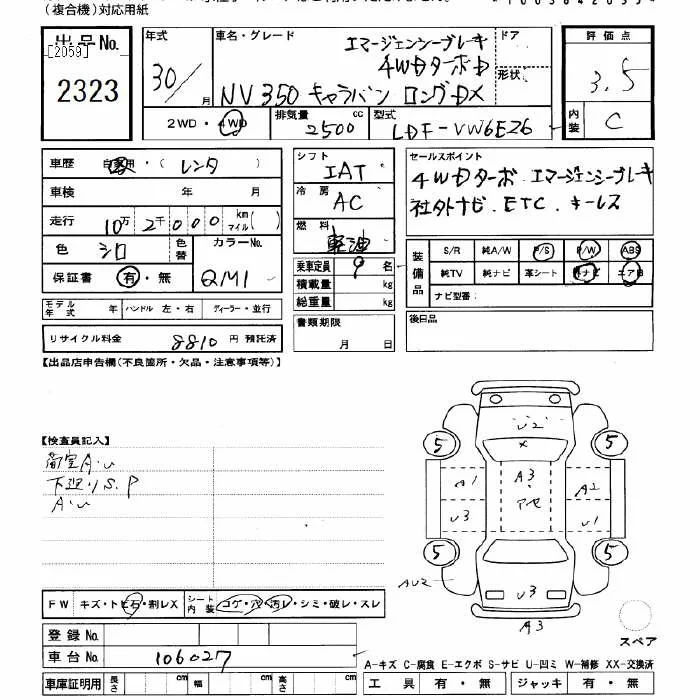 (複合機)対応用紙
出品No.
[2059]
2323
年式
30/
月
車名・グレード
エマージェンシーブレーキ
4WDターボD
NV350 キャラバン ロングDX
ドア
形状
評価点
3.5
内装
C
2WD・4WD
排気量
2500
cc
型式
LDF-VW6E26
車歴
自家用・(レンタ)
車検
年 月
走行
10万2千000
km
マイル( )
色
シロ
色替
カラーNo.
QM1
保証書
有・無
モデル年式
年
ハンドル 左・右
ディーラー・並行
リサイクル料金
8810
円 預託済
シフト
IAT
冷房
AC
燃料
軽油
乗車定員
9
名
積載量
kg
総重量
kg
書類期限
月 日
セールスポイント
4WDターボ エマージェンシーブレーキ
社外ナビ. ETC. キーレス
装備品
S/R 純A/W P/S P/W ABS
純TV 純ナビ 革シート 社ナビ エアB
ナビ型番:
後日品
【出品店申告欄(不良箇所・欠品・注意事項等)】
【検査員記入】
荷室A・U
下廻りS.P
A・U
U2
X
5
5
A1
A3
アセ
A2
U3
U1
5
5
AU2
U3
A3
スペア
FW キズ・トビ石・割レX
シート内装
コゲ・穴・汚レ・シミ・破レ・スレ
登録No.
車台No.
106027
車庫証明用
長さ
cm
幅
cm
高さ
cm
A-キズ C-腐食 E-エクボ S-サビ U-凹ミ W-補修 XX-交換済
工具 有・無
ジャッキ 有・無